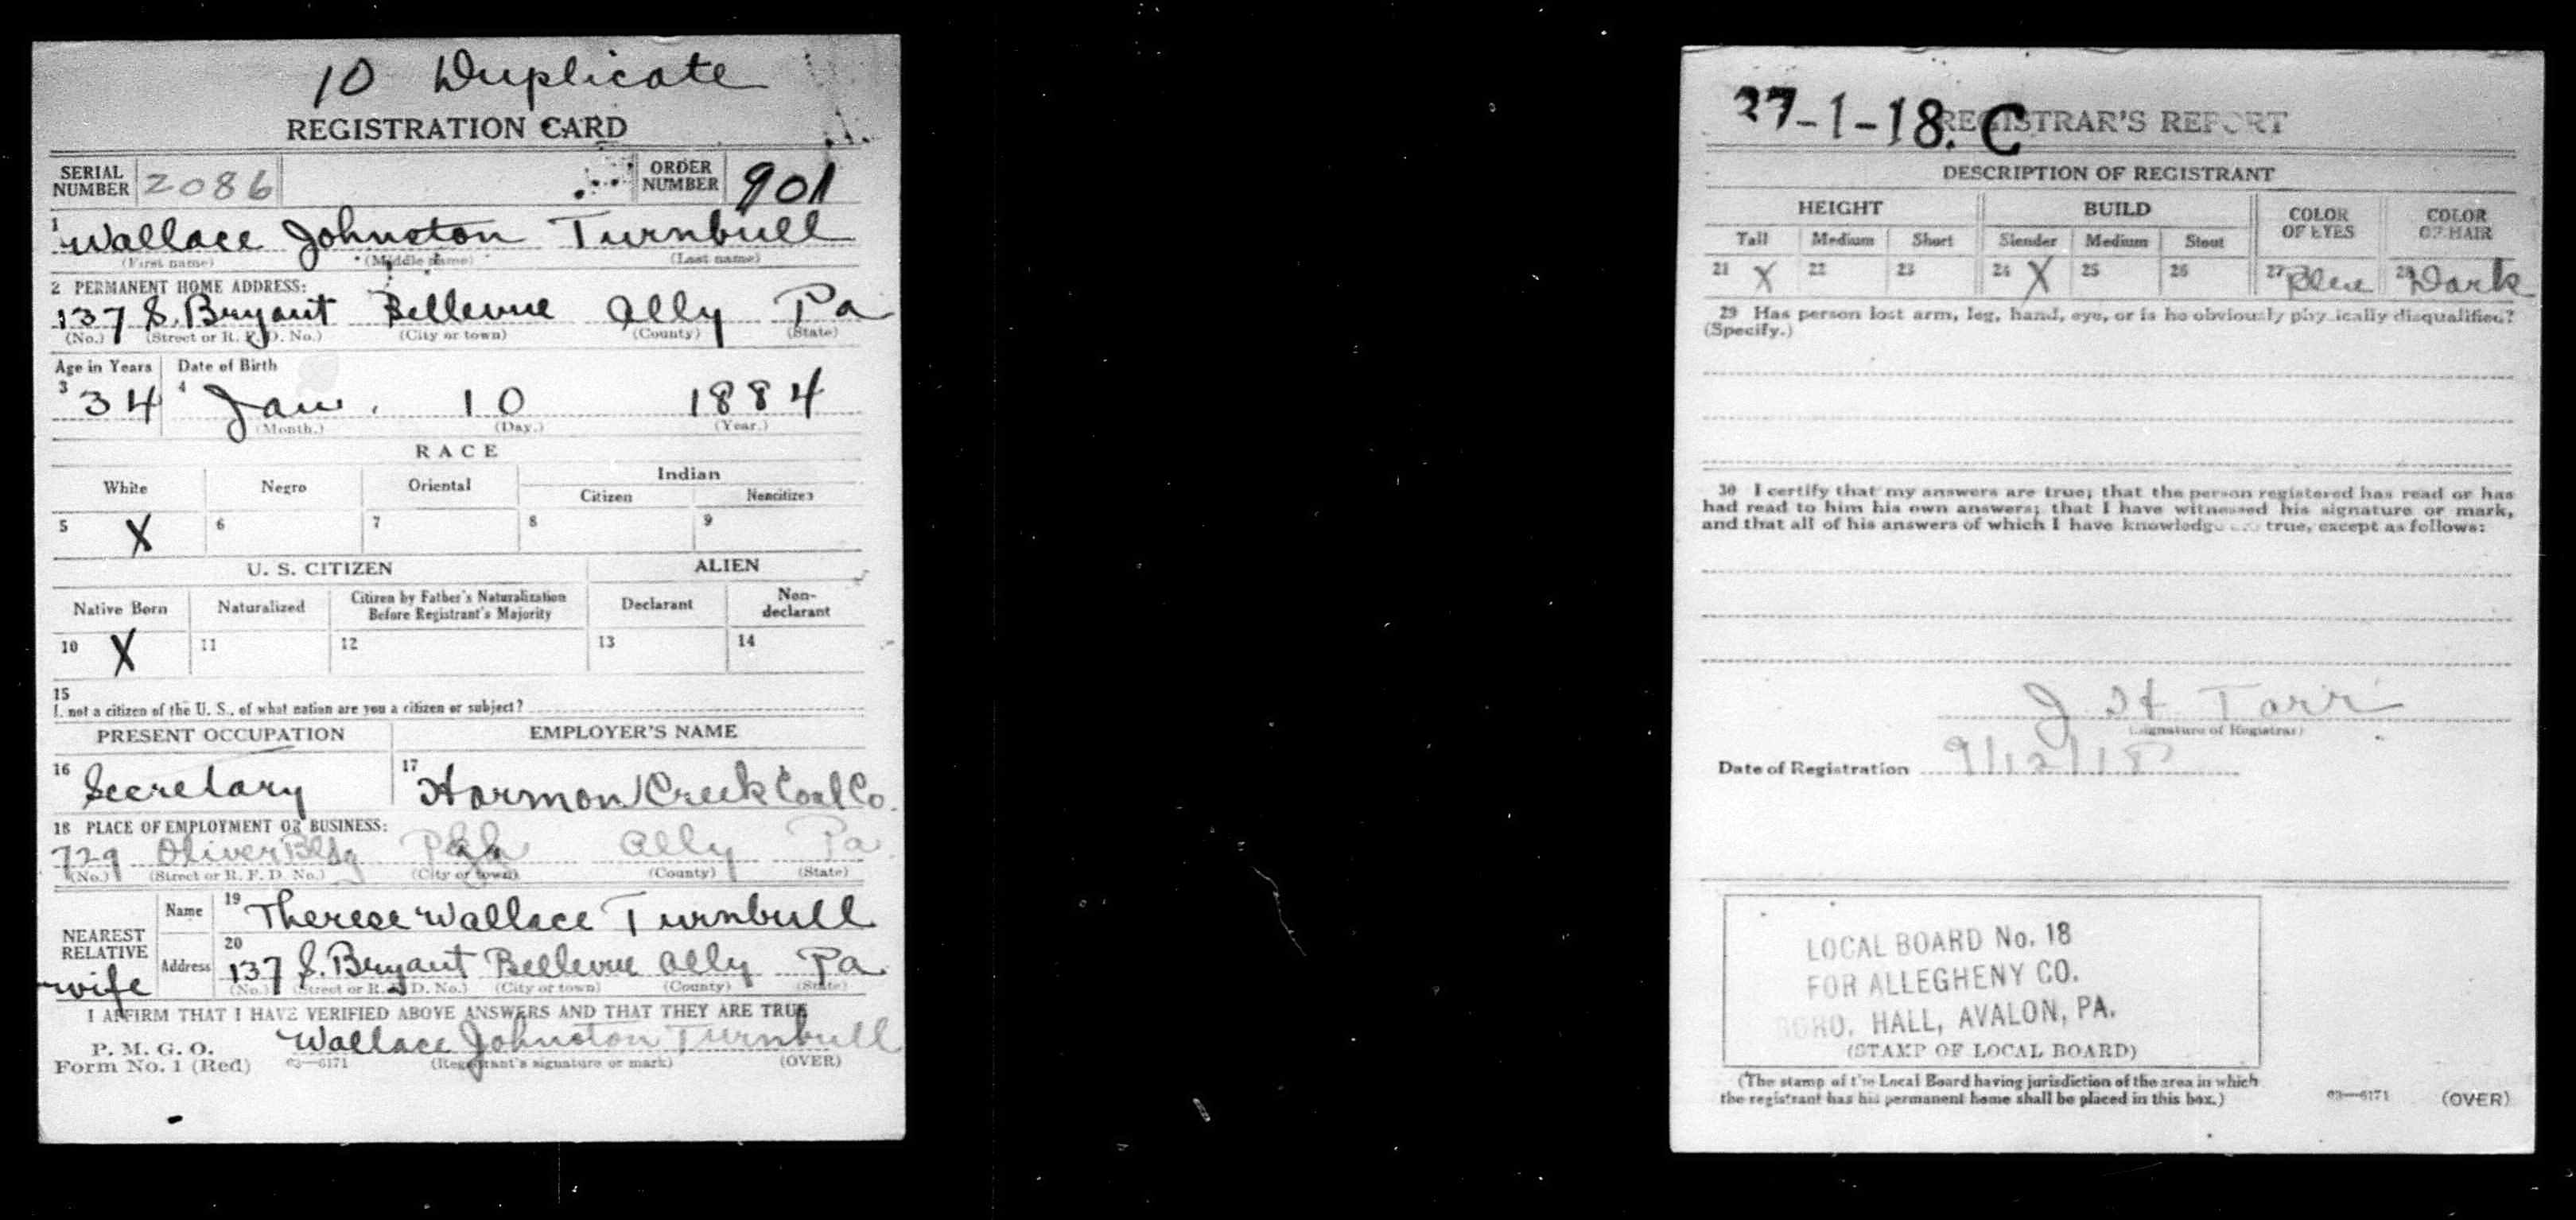 10 Duplicate
REGISTRATION CARD
SERIAL NUMBER 2086 ORDER NUMBER 901
1 Wallace Johnston Turnbull
(First name) (Middle name) (Last name)
2 PERMANENT HOME ADDRESS:
137 S. Bryant Bellevue Ally Pa
(No.) (Street or R. F. D. No.) (City or town) (County) (State)
Age in Years Date of Birth
3 34 4 Jan. 10 1884
(Month.) (Day.) (Year.)
RACE
White Negro Oriental Indian
Citizen Noncitizen
5 X 6 7 8 9
U. S. CITIZEN ALIEN
Native Born Naturalized Citizen by Father's Naturalization Before Registrant's Majority Declarant Non-declarant
10 X 11 12 13 14
15
If not a citizen of the U. S., of what nation are you a citizen or subject?
PRESENT OCCUPATION EMPLOYER'S NAME
16 Secretary 17 Harmon Creek Coal Co.
18 PLACE OF EMPLOYMENT OR BUSINESS:
729 Oliver Bldg Pgh Ally Pa
(No.) (Street or R. F. D. No.) (City or town) (County) (State)
NEAREST RELATIVE wife
Name 19 Therese Wallace Turnbull
Address 20 137 S. Bryant Bellevue Ally Pa
(No.) (Street or R. F. D. No.) (City or town) (County) (State)
I AFFIRM THAT I HAVE VERIFIED ABOVE ANSWERS AND THAT THEY ARE TRUE
P. M. G. O.
Form No. 1 (Red) 03—6171 Wallace Johnston Turnbull
(Registrant's signature or mark) (OVER)
37-1-18. C REGISTRAR'S REPORT
DESCRIPTION OF REGISTRANT
HEIGHT BUILD COLOR OF EYES COLOR OF HAIR
Tall Medium Short Slender Medium Stout
21 X 22 23 24 X 25 26 27 Blue 28 Dark
29 Has person lost arm, leg, hand, eye, or is he obviously physically disqualified?
(Specify.)
30 I certify that my answers are true; that the person registered has read or has
had read to him his own answers; that I have witnessed his signature or mark,
and that all of his answers of which I have knowledge are true, except as follows:
J H Tarr
(Signature of Registrar)
Date of Registration 9/12/18
LOCAL BOARD No. 18
FOR ALLEGHENY CO.
BORO. HALL, AVALON, PA.
(STAMP OF LOCAL BOARD)
(The stamp of the Local Board having jurisdiction of the area in which
the registrant has his permanent home shall be placed in this box.)
03—6171 (OVER)